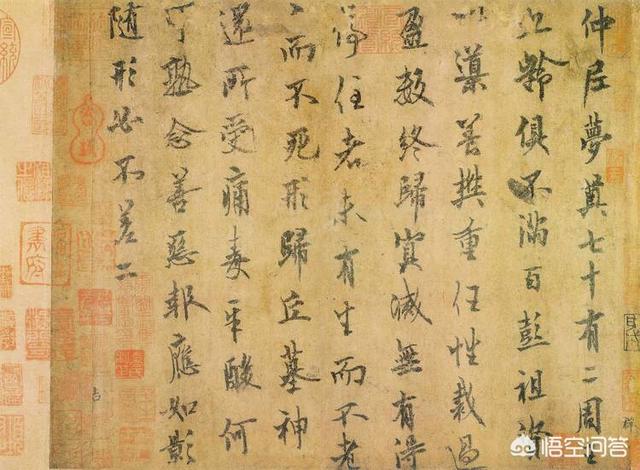 仲尼夢奠七十有二周王
九齡俱不滿百彭祖資
以導養樊重任性裁過
盈數終歸冥滅無有得
停住者未有生而不老
〻而不死形歸丘墓神
還所受痛毒辛酸何
可熟念善惡報應如影
隨形必不差二
悟空问答